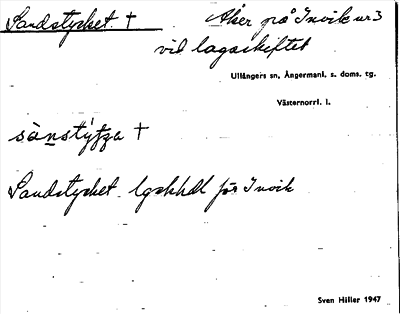 Sandstycket † Åker på Invik nr 3
vid lagaskiftet
Ullångers sn, Ångermanl. s. doms. tg.
Västernorrl. l.
Sandstycket. lgskhdl för Invik
Sven Hiller 1947